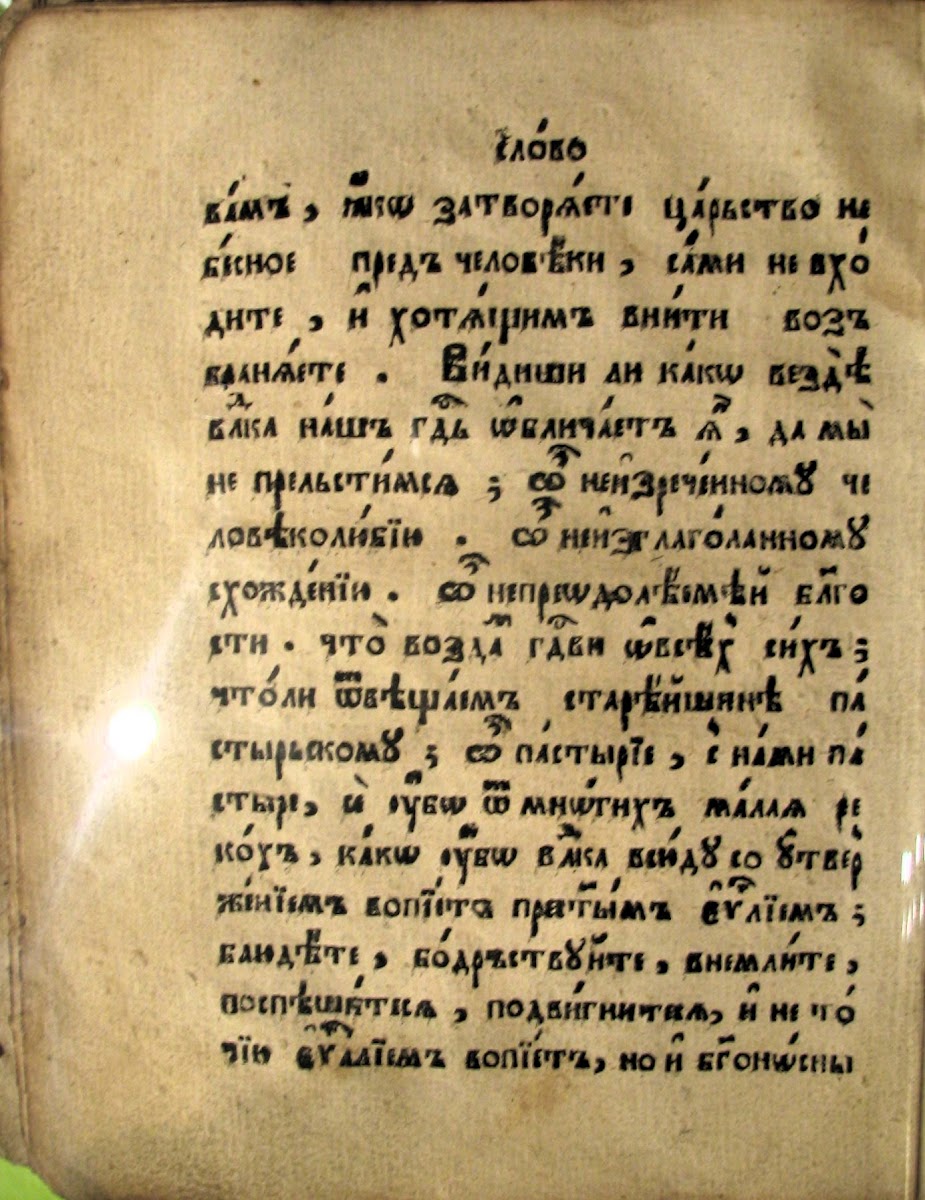 сло́во
ва́мъ, ꙗ҆́кѡ затворѧ́ете ца́рьство не
бе́сное предъ человѣ́ки, са́ми не вхо́
дите, и҆ хотѧ́щимъ вни́ти возъ
бранѧ́ете. Ви́диши ли ка́кѡ вездѣ̀
влⷣка на́шъ гдⷭ҇ь ѡ҆блича́етъ ѧ҆̀, да мы̀
не прельсти́мсѧ; ѽ неи҆зрече́нномꙋ че
ловѣколю́бїю. ѽ неи҆зглаго́ланномꙋ
схожде́нїю. ѽ непреѡдолѣ́емѣй бл҃го
сти. что̀ возда́мъ гдⷭ҇ви ѡ҆всѣ́хъ си́хъ;
что́ли ѿвѣща́емъ старѣ́йшинѣ па́
стырьскомꙋ; ѽ па́стырїе, с̾ на́ми па́
стырє, и҆̀ ᲂу҆́бѡ ѿ мнѡ́гихъ ма́лаѧ ре
ко́хъ, ка́кѡ ᲂу҆́бѡ влⷣка всю́дꙋ со ᲂу҆твер
же́нїемъ вопїе́тъ прест҃ы́мъ є҆ѵⷢ҇лїемъ;
блюдѣ́те, бо́дрствꙋйте, внемли́те,
поспѣши́тесѧ, подви́гнитесѧ, и҆ не то́
чїю є҆ѵⷢ҇лїемъ вопїе́тъ, но и҆ бг҃онѡ́сны